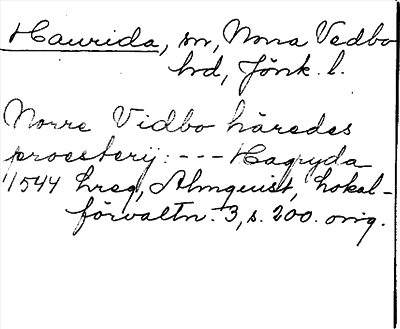 Haurida, sn, Norra Vedbo
hd, Jönk. l.
Norre Vidbo häredes
proesterij: --- Hagryda
1544 hreg, Almquist, Lokal-
förvaltn. 3, s. 200. orig.